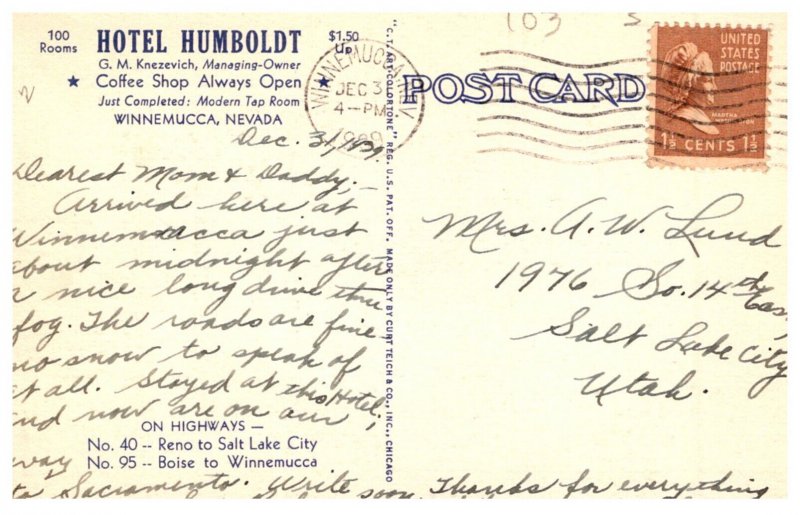 100
Rooms
HOTEL HUMBOLDT
$1.50
Up
G. M. Knezevich, Managing-Owner
★ Coffee Shop Always Open ★
Just Completed: Modern Tap Room
WINNEMUCCA, NEVADA
WINNEMUCCA NEV
DEC 31
4-PM
1939
POST CARD
103
UNITED
STATES
POSTAGE
MARTHA
WASHINGTON
1½ CENTS 1½
Dec. 31, 1939
Dearest Mom & Daddy,
Arrived here at
Winnemucca just
about midnight after
a nice long drive thru
fog. The roads are fine,
no snow to speak of
at all. Stayed at this Hotel,
and now are on our
ON HIGHWAYS —
No. 40 -- Reno to Salt Lake City
No. 95 -- Boise to Winnemucca
way
to Sacramento. Write soon, Thanks for everything
"C.T. ART-COLORTONE" REG. U.S. PAT. OFF. MADE ONLY BY CURT TEICH & CO., INC., CHICAGO
Mrs. A. W. Lund
1976 So. 14th East,
Salt Lake City
Utah.